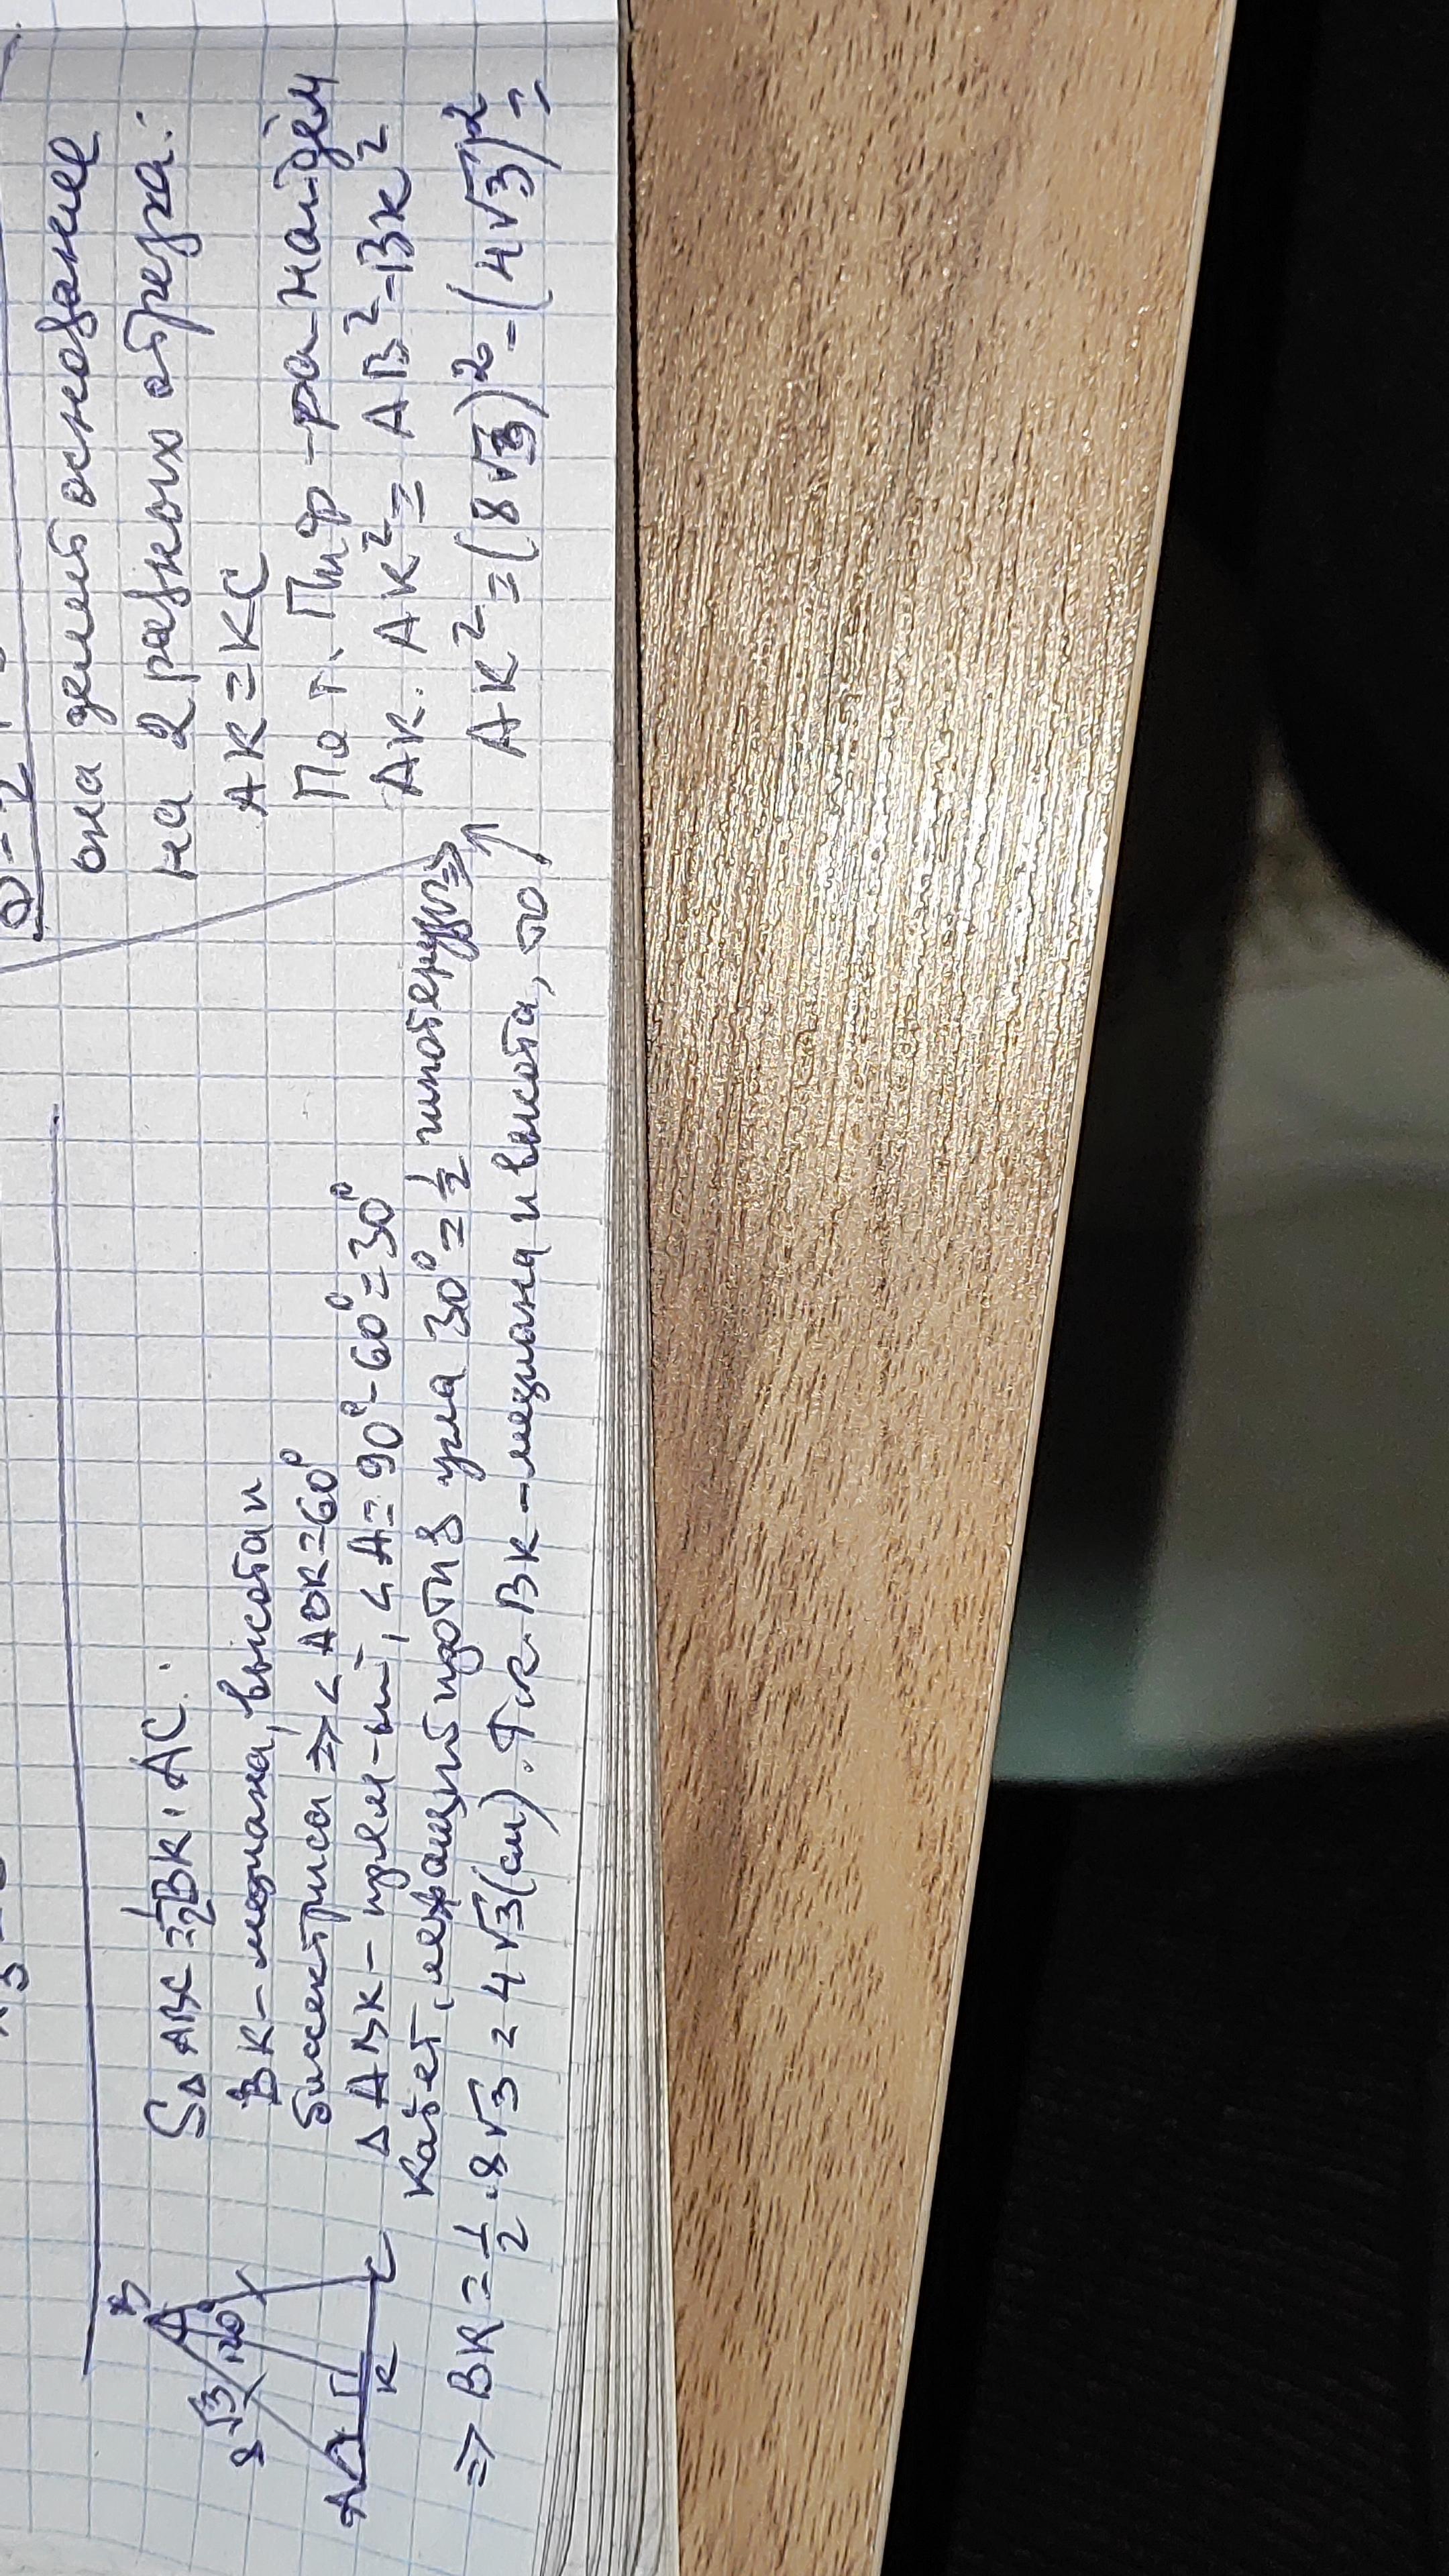 8√3
B
120°
A
K
C
S△ABC = 1/2 BK · AC.
BK – медиана, высота и
биссектриса => < ABK = 60°
△ ABK – прям-ый, < A = 90° - 60° = 30°
Катет, лежащий против угла 30° = 1/2 гипотенузы =>
=> BK = 1/2 · 8√3 = 4√3 (см). Т.к. BK – медиана и высота, то
она делит основание
на 2 равных отрезка:
AK = KC
По т. Пиф-ра найдём
AK. AK² = AB² - BK²
AK² = (8√3)² - (4√3)² =